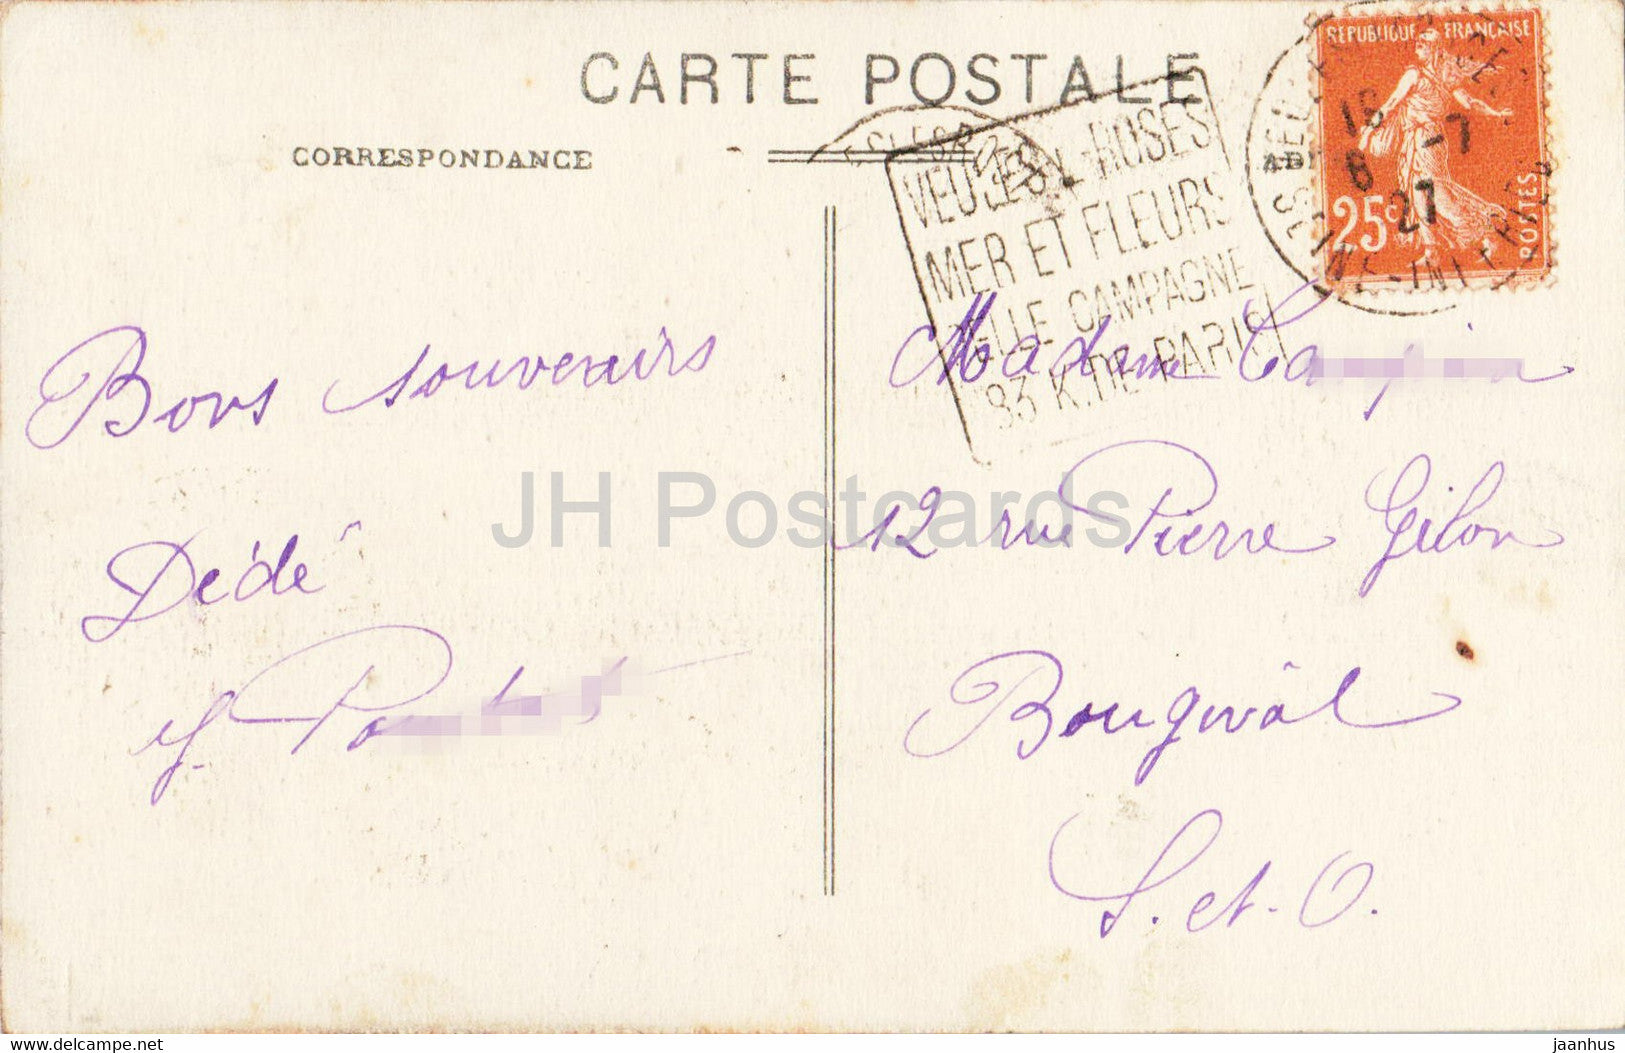 CARTE POSTALE
CORRESPONDANCE
REPUBLIQUE FRANÇAISE
25c
POSTES
16
6 -7
27
VEULES-L-ROSES
MER ET FLEURS
BELLE CAMPAGNE
83 K. DE PARIS
Bons souvenirs
Dédé
Madame
12 rue Pierre Gilon
Bougival
S. et. O.
JH Postcards
delcampe.net
jaanhus